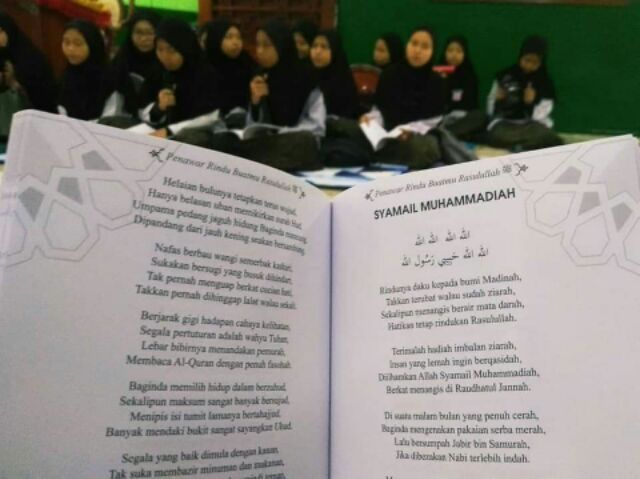 Penawar Rindu Buatmu Rasulullah
Helaian bulunya tetapkan terus wujud,
Hanya belasan uban memikirkan surah Hud,
Umpama pedang jaguh hidung Baginda mancung,
Dipandang dari jauh kening seakan bersambung.
Nafas berbau wangi semerbak kasturi,
Sukakan bersugi yang busuk dihindari,
Tak pernah menguap berkat cucian hati,
Takkan pernah dihinggap lalat walau sekali.
Berjarak gigi hadapan cahaya kelihatan,
Segala pertuturan adalah wahyu Tuhan,
Lebar bibirnya menandakan pemurah,
Membaca Al-Quran dengan penuh fasohah.
Baginda memilih hidup dalam berzuhud,
Sekalipun maksum sangat banyak bersujud,
Menipis isi tumit lamanya bertahajjud,
Banyak mendaki bukit sangat sayangkan Uhud.
Segala yang baik dimula dengan kanan,
Tak suka membazir minuman dan makanan,
Penawar Rindu Buatmu Rasulullah
SYAMAIL MUHAMMADIAH
الله الله الله الله
الله الله حبيبي رسول الله
Rindunya daku kepada bumi Madinah,
Takkan terubat walau sudah ziarah,
Sekalipun menangis berair mata darah,
Hatikan tetap rindukan Rasulullah.
Terimalah hadiah imbulan ziarah,
Insan yang lemah ingin berqasidah,
Diilhamkan Allah Syamail Muhammadiah,
Berkat menangis di Raudhatul Jannah.
Di suatu malam bulan yang penuh cerah,
Baginda mengenakan pakaian serba merah,
Lalu bersumpah Jabir bin Samurah,
Jika dibezakan Nabi terlebih indah.